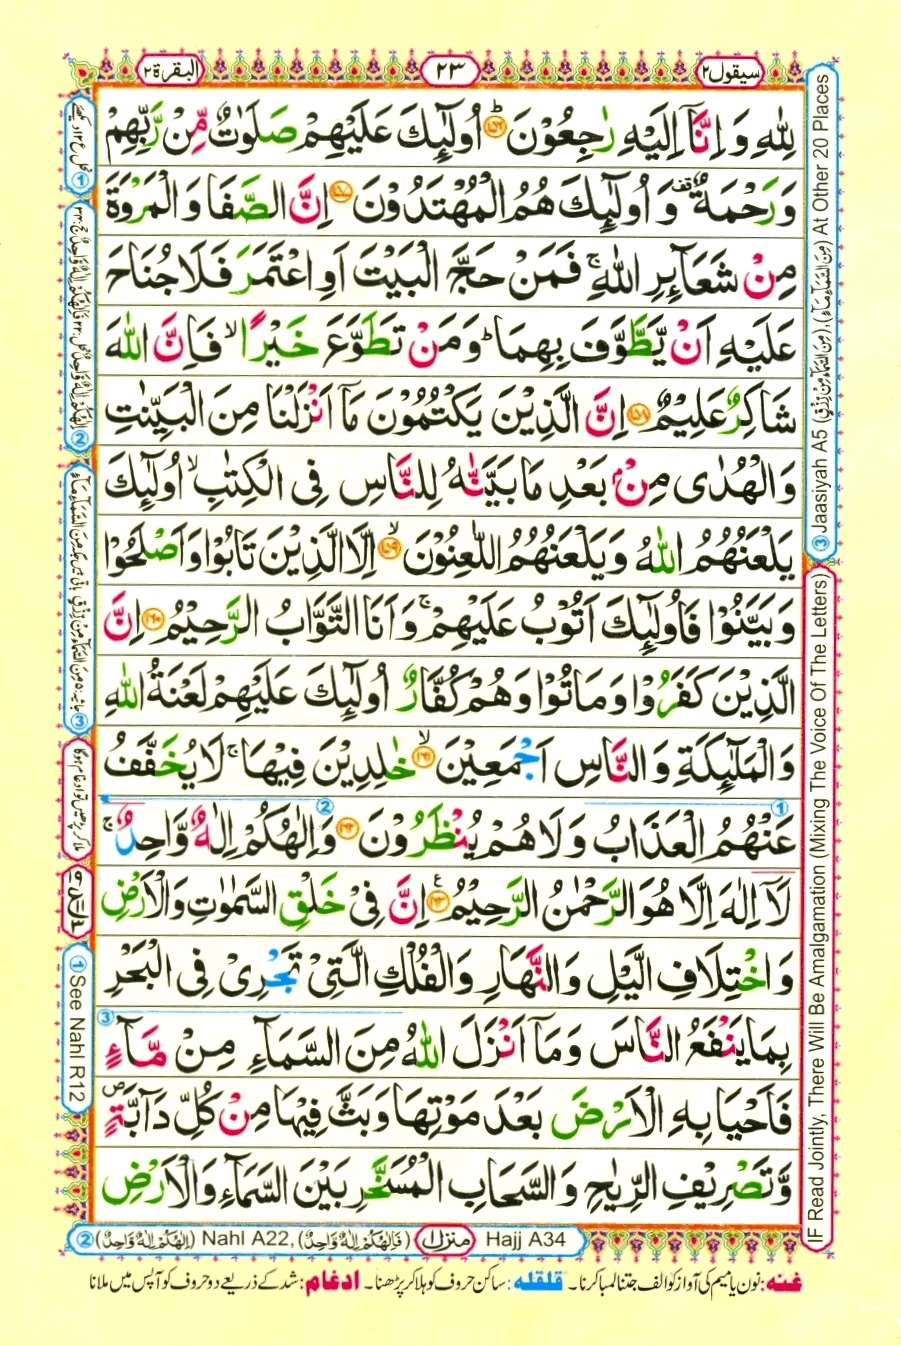 سيقول ٢
٢٣
البقرة ٢
لِلّٰهِ وَ اِنَّاۤ اِلَيْهِ رٰجِعُوْنَؕ ۝١٥٦ اُولٰٓئِكَ عَلَيْهِمْ صَلَوٰتٌ مِّنْ رَّبِّهِمْ
وَرَحْمَةٌ وَ اُولٰٓئِكَ هُمُ الْمُهْتَدُوْنَ ۝١٥٧ اِنَّ الصَّفَا وَ الْمَرْوَةَ
مِنْ شَعَآئِرِ اللّٰهِۚ فَمَنْ حَجَّ الْبَيْتَ اَوِ اعْتَمَرَ فَلَا جُنَاحَ
عَلَيْهِ اَنْ يَّطَّوَّفَ بِهِمَاؕ وَ مَنْ تَطَوَّعَ خَيْرًاۙ فَاِنَّ اللّٰهَ
شَاكِرٌ عَلِيْمٌ ۝١٥٨ اِنَّ الَّذِيْنَ يَكْتُمُوْنَ مَاۤ اَنْزَلْنَا مِنَ الْبَيِّنٰتِ
وَالْهُدٰى مِنْۢ بَعْدِ مَا بَيَّنّٰهُ لِلنَّاسِ فِى الْكِتٰبِۙ اُولٰٓئِكَ
يَلْعَنُهُمُ اللّٰهُ وَيَلْعَنُهُمُ اللّٰعِنُوْنَۙ ۝١٥٩ اِلَّا الَّذِيْنَ تَابُوْا وَاَصْلَحُوْا
وَبَيَّنُوْا فَاُولٰٓئِكَ اَتُوْبُ عَلَيْهِمْۚ وَاَنَا التَّوَّابُ الرَّحِيْمُ ۝١٦٠ اِنَّ
الَّذِيْنَ كَفَرُوْا وَمَاتُوْا وَهُمْ كُفَّارٌ اُولٰٓئِكَ عَلَيْهِمْ لَعْنَةُ اللّٰهِ
وَالْمَلٰٓئِكَةِ وَ النَّاسِ اَجْمَعِيْنَۙ ۝١٦١ خٰلِدِيْنَ فِيْهَاۚ لَا يُخَفَّفُ
عَنْهُمُ الْعَذَابُ وَلَا هُمْ يُنْظَرُوْنَ ۝١٦٢ وَاِلٰهُكُمْ اِلٰهٌ وَّاحِدٌۚ
لَآ اِلٰهَ اِلَّا هُوَ الرَّحْمٰنُ الرَّحِيْمُ ۝١٦٣ اِنَّ فِىْ خَلْقِ السَّمٰوٰتِ وَالْاَرْضِ
وَ اخْتِلَافِ الَّيْلِ وَالنَّهَارِ وَالْفُلْكِ الَّتِىْ تَجْرِىْ فِى الْبَحْرِ
بِمَا يَنْفَعُ النَّاسَ وَمَاۤ اَنْزَلَ اللّٰهُ مِنَ السَّمَآءِ مِنْ مَّآءٍ
فَاَحْيَا بِهِ الْاَرْضَ بَعْدَ مَوْتِهَا وَبَثَّ فِيْهَا مِنْ كُلِّ دَآبَّةٍ
وَّتَصْرِيْفِ الرِّيٰحِ وَالسَّحَابِ الْمُسَخَّرِ بَيْنَ السَّمَآءِ وَالْاَرْضِ
③ Jaasiyah A5 (مِنَ السَّمَآءِ مِنْ رِّزْقٍ), (مِنَ السَّمَآءِ مَآءً) At Other 20 Places
IF Read Jointly, There Will Be Amalgamation (Mixing The Voice Of The Letters)
① See Nahl R12
② (اِلٰهُكُمْ اِلٰهٌ وَّاحِدٌ) Nahl A22, (فَاِلٰهُكُمْ اِلٰهٌ وَّاحِدٌ) Hajj A34
منزل ١
غنه: نون یا میم کی آواز کو الف جتنا لمبا کرنا۔ قلقله: ساکن حروف کو ہلا کر پڑھنا۔ ادغام: شد کے ذریعے دو حروف کو آپس میں ملانا